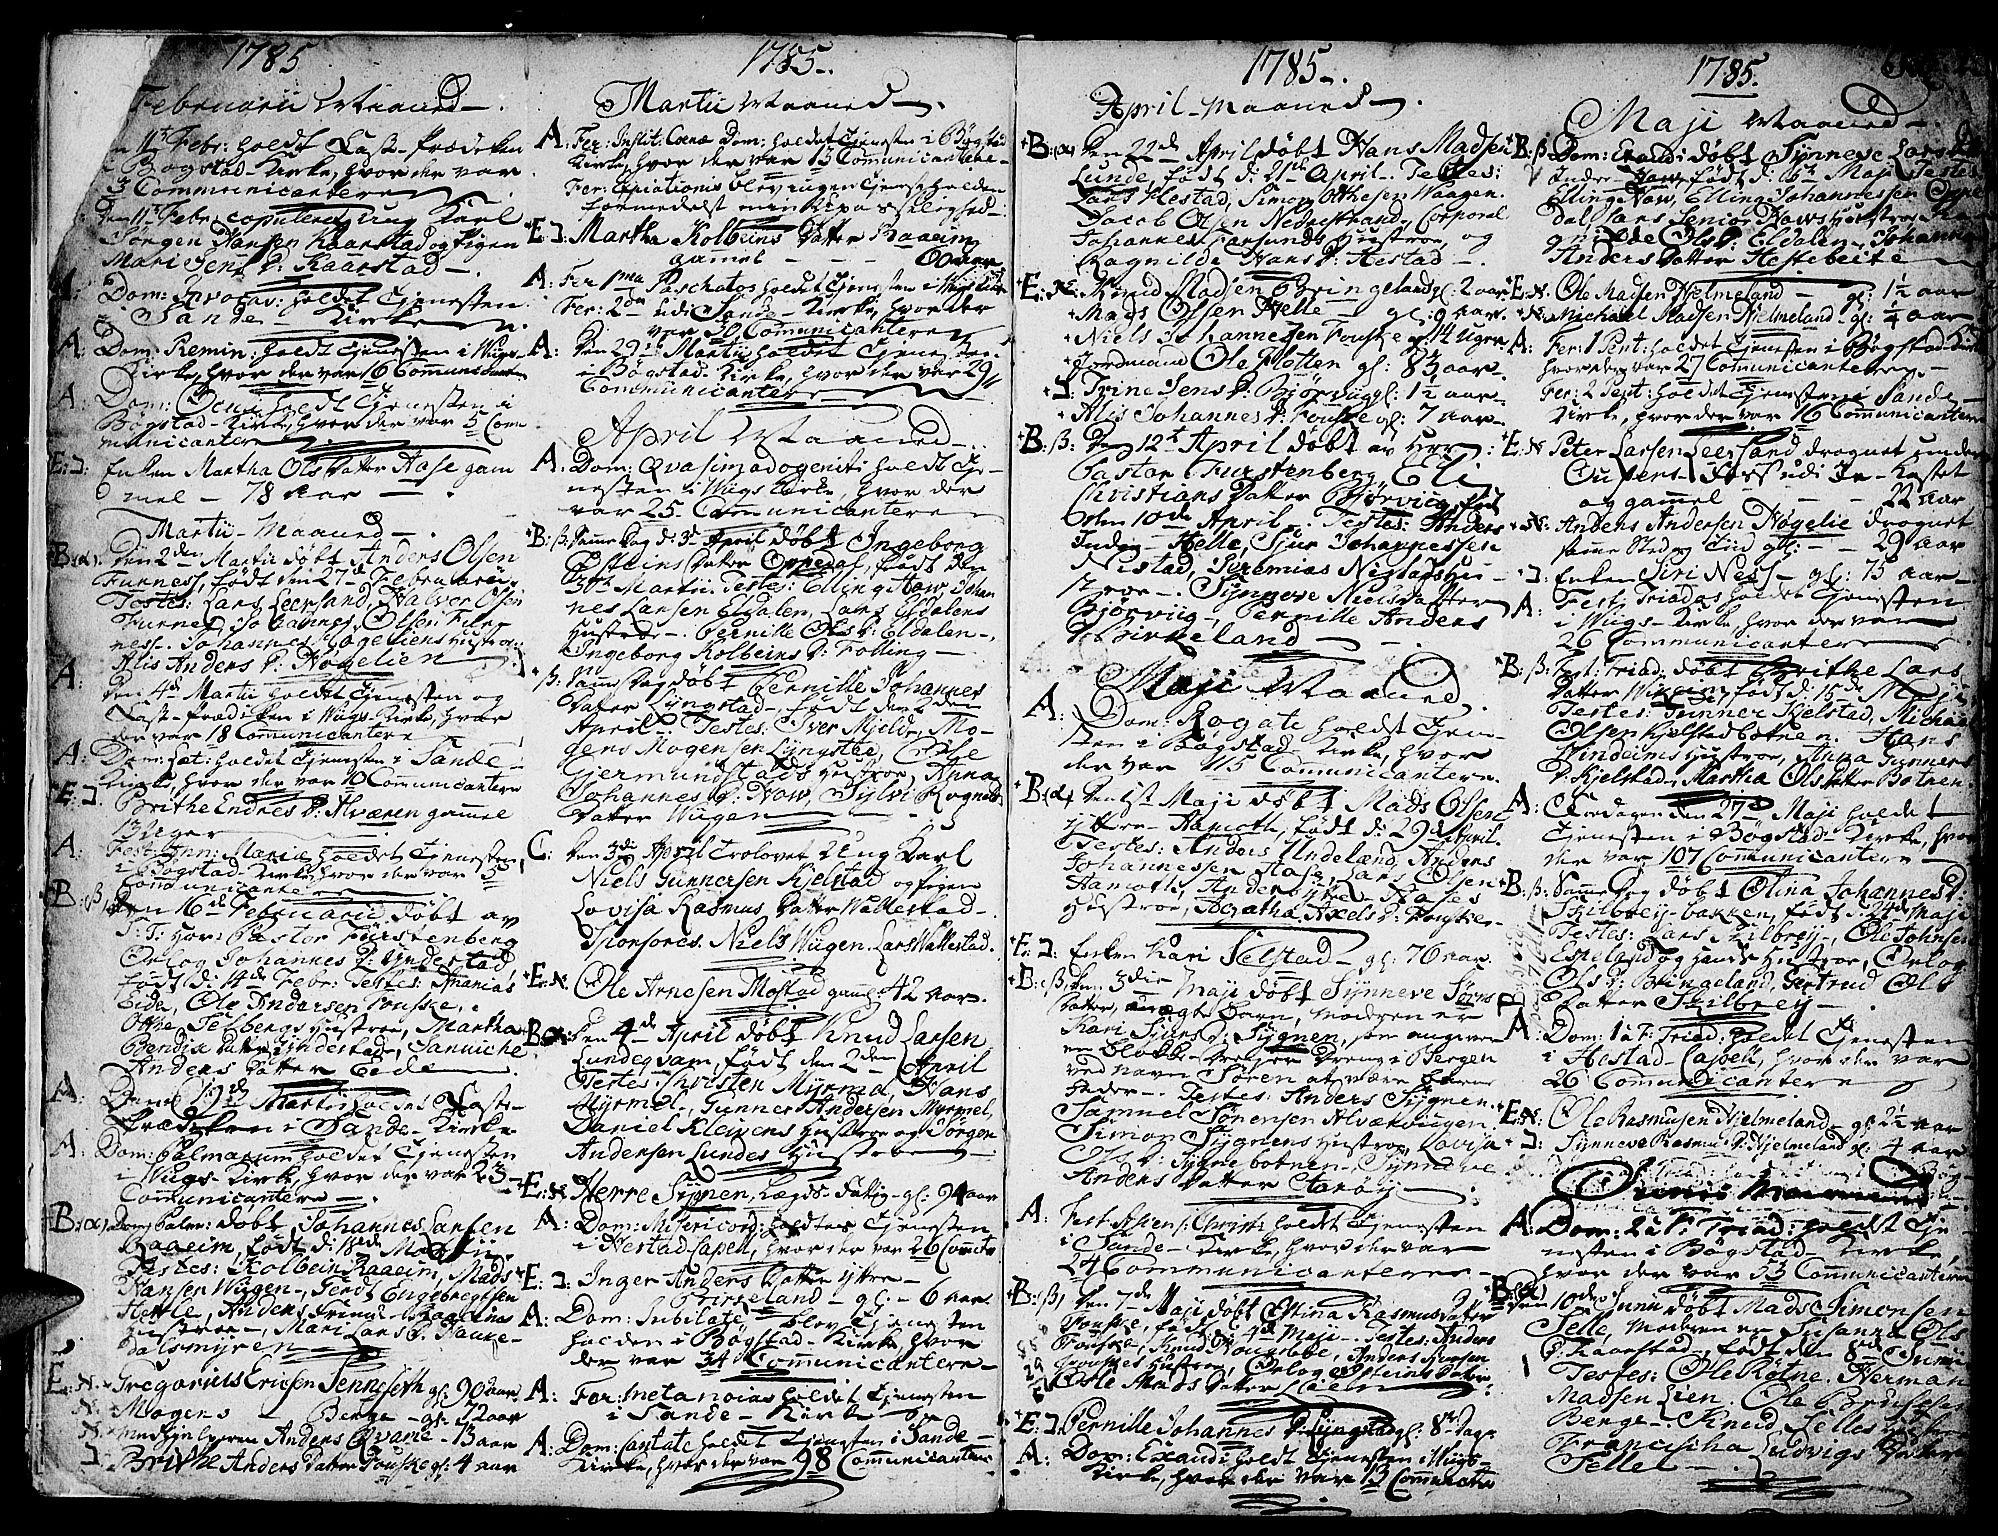 1785
Februarii Maaned
11te Febr: holdt Faste-Prædiken
i Bøgstad-Kirke, hvor der var
3 Communicantere
den 11te Febr: copuleret Ung Karl
Jørgen Hansen Kaarstad og Pigen
Mari Jens D: Kaarstad
A: Dom: Invocav: holdet Tjenesten
i Sande-Kirke
A: Dom: Remin: holdt Tjenesten i Wiigs-
Kirke, hvor der var 16 Communicant
A: Dom: Oculi holdt Tjenesten i
Bøgstad-Kirke, hvor der var 5 Com
municantere
E: Enken Martha Ols Datter Aase gam
mel - 78 Aar
Martii-Maaned
B:(α). den 2den Martii døbt Anders Olsen
Furness, født den 27de Februarii
Testes: Lars Leersand, Halvor Olsen
Furnes, Johannes Olsen Furne
nes, Johannes Høgeliens Hustroe
Alis Anders D: Høgelien
A: den 4de Martii holdet Tjenesten og
Fast-Prædiken i Wiigs-Kirke, hvor
der var 18 Communicantere
A: Dom: Læt: holdet Tjenesten i Sande-
Kirke, hvor der var 10 Communicantere
E: Brithe Endres D: Alværen gammel
13 Uger
A: Fest: Ann: Mariæ holdet Tjenesten
i Bøgstad-Kirke, hvor der var 15
Communicantere
B:(β) den 16de Februarii døbt av
S: T: Herr Pastor Fürstenberg
Orlog Johannes D: Undestad
født d: 14de Febr: Testes: Ananias
Eide, Ole Andersen Fouske,
Hustroe, Martha
Bendix Datter Undestad, Sanniche
Anders Datter Eide
A: Den 19de Martii holdet Faste-
Prædiken i Sande-Kirke
A: Dom: Palmarum holdet Tjenesten
i Wiigs-Kirke, hvor der var 23
Communicantere
B:(α). Dom: Palm: døbt Johannes Larsen
Raaeim, født d: 18de Martii
Testes: Kolbein Raaeim, Mads
Hansen Wiigen, Ferd: Engebregtsen
Helle, Anders
Hustroe, Mari Lars D: Sauke-
dalsmyren
E: N. Gregorius Ericsen Jenneseth gl: 90 Aar
N. Mogens Berge - gl: 72 Aar
N. Anders Qvame - 13 Aar
Brithe Anders Datter Fouske gl: 4 Aar
1785.
Martii Maaned
A: Fer: Instit: Coenæ Dom: holdet Tjenesten i Bøgstad
Kirke, hvor der var 15 Communicantere
Fer: Expiationis blev ingen Tjeneste holden
formedelst min Upasselighed
E: Martha Kolbeins Datter Raaeim
gamel - - - 60 Aar
A: Fer 1ma Paschatos holdet Tjenesten i Wiigs Kirke
Fer: 2da udi Sande-Kirke, hvor der
var 30 Communicantere
A: den 29de Martii holdet Tjenesten
i Bøgstad-Kirke, hvor der var 29
Communicantere
April Maaned
A: Dom: Qvasimodogeniti holdt Tje-
nesten i Wiigs Kirke, hvor der
var 25 Communicantere
B: β: Samme Dag d: 3die April døbt Ingeborg
Eisteins Datter Oppedal, født den
30te Martii. Testes: Elling Haw, Johan
nes Larsen Eldalen, Lars Eldalens
Hustroe. Pernille Ols D: Eldalen,
Ingeborg Kolbeins D: Følling
β: Samme Dag døbt Pernille Johannes
Datter Lyngstad, født den 2den
April. Testes: Iver Mjelde, Mo-
gens Mogensen Lyngstøe, Ole
Gjermundstads Hustroe, Anna
Johannes D: Haw, Sylvi Rognald
Datter Wiigen
C: den 3die April Trolovet Ung Karl
Niels Gunnersen Kjelstad og Pigen
Lovisa Rasmus Datter Wallestad
Sponsores. Niels Wiigen. Lars Wallestad.
E: N: Ole Arnesen Mostad gaml: 42 Aar.
B:α: den 4de April døbt Knud Larsen
Lundeqvam, født den 2den April
Testes: Christen Myrmel, Hans
Myrmel, Gunner Andersen Myrmel,
Daniel Kleivens Hustroe og Jørgen
Andersen Lundes Hustroe
E: N: Herre Sygnen, Lægds-Fattig - gl: 94 Aar
A: Dom: Misericord: holdtes Tjenesten
i Hestad Capell, hvor der var 26 Comts
E: Inger Anders Datter Yttre-
Birkeland - gl: - 6 Aar.
A: Dom: Jubilate blev Tjenesten
holden i Bøgstad-Kirke, hvor
der var 34 Communicantere
A: Fer: Metanoias holdet Tjenesten
i Sande-Kirke
A: Dom: Cantate holdet Tjenesten i Sande-
Kirke, hvor der var 98 Communicantere
1785.
April-Maaned
B:(α) den 22de April døbt Hans Madsen
Lunde, født d: 21de April. Testes:
Lars Hestad, Simon Otthesen Waagen,
Jacob Olsen Nedrestrand, Corporal
Johannes Hustroe, og
Ragnilde Hans D: Hestad
E: N: Knud Madsen Bringeland gl: 2 Aar
Mads Olsen Helle - gl: 9 Aar.
Niels Johannessen Fouske gl: 14 Ugen
Jordmand Ole Flotten gl: 83 Aar
Trine Jens D: Bjørvig gl: 1½ Aar
Alis Johannes D: Fouske gl: 7 Aar
B: β: den 12te April døbt av Herr
Pastor Fürstenberg Eli
Christians Datter Bjørvig, født
den 10de April. Testes: Anders
Indre-Helle, Siur Johannessen
Nistad, Jeremias Nistads Hu-
stroe, Synneve Niels Datter
Bjørviig, Pernille Anders
D: Birkeland
Maji Maaned
A: Dom: Rogate holdt Tjen-
sten i Bøgstad-Kirke, hvor
der var 115 Communicantere.
B:(α) den 1ste Maji døbt Mads Olsen
Yttre-Hamoth, født d: 29de April.
Testes: Anders Undeland, Anders
Johannessen Aase, Lars Olsen
Hamoth, Anders Yttre-Aases
Hustroe, Agatha Axels D: Fouske
E: Enken Kari Selstad - gl: 70 Aar
B:(β) den 3die Maji døbt Synneve Sørens
Datter, uægte Barn, Modren er
Kari Siurs D: Sygnen, som angiver
en Dreng i Bergen
ved navn Søren at være Barne
Fader. Testes: Anders Sygnen,
Samuel Sørensen Alvæwiigen,
Simon Sygnens Hustroe, Lovisa
Ols D: Sygnebotnen, Synneve
Anders Datter Starøy
A: Fest: Ascen: Christi holdet Tjenesten
i Sande-Kirke, hvor der var
24 Communicantere
B:(β) den 7de Maji døbt Stina Rasmus Datter
Fouske, født d: 4de Maji. Testes: Anders
Fouske, Knud Hougsbøe, Anders Siursen
Fouskes Hustroe, Orlog Osteins Datter
Osle Mads Datter Lien
E: Pernille Johannes D: Lyngstad gl: 8te Dage
A: Dom: Exaudi holdt Tjenesten i Wiigs-
Kirke, hvor der var 13 Communicanter
1785.
Maji Maaned
B: β: Dom: Exaudi døbt Synneve Lars D:
Indre-Haw, født d: 5te Maji. Testes
Elling Haw, Elling Johannessen Oppe
dal, Hans Senior Haws Hustroe, Rag
nilde Ols D: Eldalen, Johanna
Anders Datter Hestebeite
E: N: Ole Madsen Hjelmeland - gl: 1½ Aar
N: Michael Madsen Hjelmeland - gl: ¼ Aar
A: Fer: 1 Pent: holdet Tjenesten i Bøgstad Kirke
hvor der var 27 Communicantere.
Fer: 2 Pent: holdet Tjenesten i Sande-
Kirke, hvor der var 16 Communicantere
E: N: Peter Larsen Leersand drognet under
udi
og gammel - - 22 Aar
N: Anders Andersen Høgelie drognet
samme Sted og Tiid gl: - - 29 Aar
Enken Siri Ness - gl: 75 Aar
A: Fest: Triados holdet Tjenesten
i Wiigs-Kirke hvor der var
26 Communicantere
B: β: Fest: Triad: døbt Brithe Lars
Datter Wiigum, født d: 15de Maji
Testes: Gunner Kjelstad, Michael
Olsen Kjelstadbotnen. Hans
Hindeims Hustroe, Anna Gunners
D: Kjelstad, Martha Ols Datter Botnen
A: Tirsdagen den 27de Maji holdet
Tjenesten i Bøgstad-Kirke, hvor
der var 107 Communicantere
B: β: Samme Dag døbt Stina Johannes D:
Skilbreybakken, født d: 24de Maji
Testes: Lars Skilbrey, Ole Johnsen
Espeland og Hans Hustroe, Orlog
Ols D: Bringeland, Gertrud Ols
Datter Skilbrey
A: Dom: 1 a F: Triad: holdet Tjenesten
i Hestad-Capell, hvor der var
26 Communicantere
E: N: Ole Rasmusen Hjelmeland - gl: 2½ Aar
Synneve Rasmus D: Hjelmeland gl: 4 Aar
Junii Maaned
A: Dom: 2 a F: Triad: holdt Tje-
nesten i Bøgstad-Kirke,
hvor der var 53 Communicantere
B:(α) den 10de Junii døbt Mads Simonsen
Selle, Modren er Susanna Ols
D: Kaarstad, født den 8de Junii
Testes: Ole Røtne, Herman
Madsen Lien, Ole
Berge. Knud Selles Hustroe
Francisca Ludvigs Datter
Selle